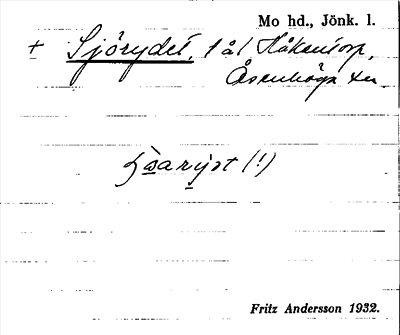 Mo hd., Jönk. l.
+ Sjörydet, t ål Håkentorp,
Åsenhöga sn
(!)
Fritz Andersson 1932.